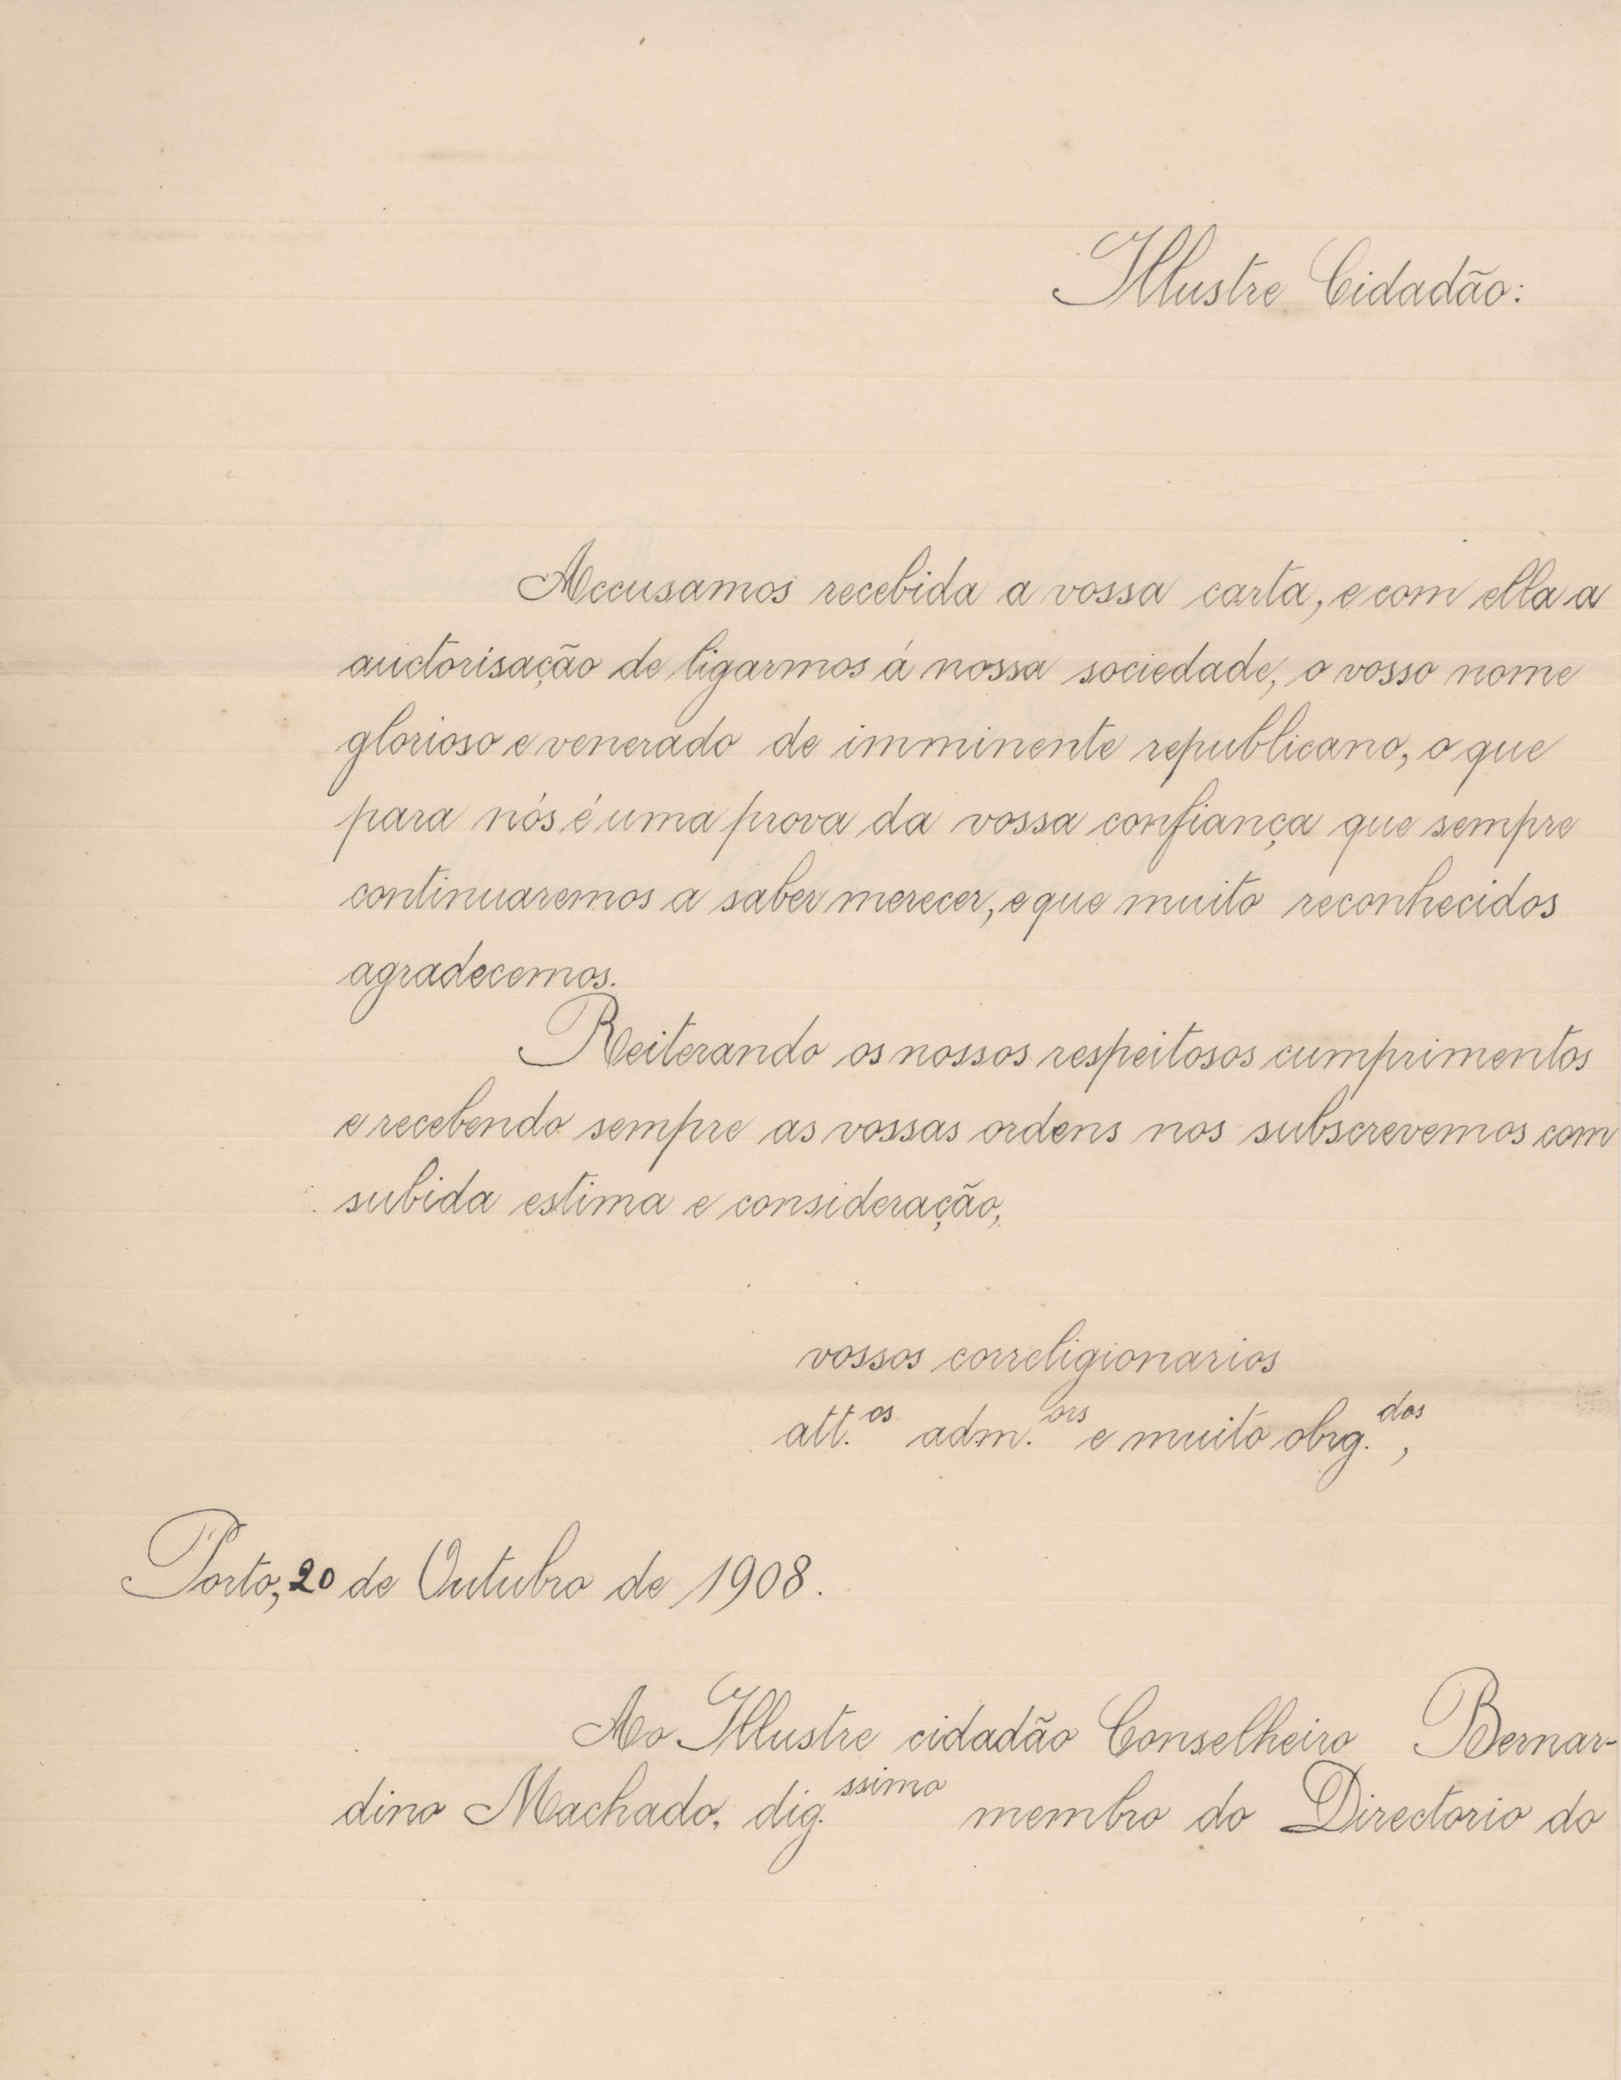 Illustre Cidadão:
Accusamos recebida a vossa carta, e com ella a
auctorisação de ligarmos á nossa sociedade, o vosso nome
glorioso e venerado de imminente republicano, o que
para nós é uma prova da vossa confiança que sempre
continuaremos a saber merecer, e que muito reconhecidos
agradecemos.
Reiterando os nossos respeitosos cumprimentos
e recebendo sempre as vossas ordens nos subscrevemos com
subida estima e consideração,
vossos correligionarios
att.os adm.ors e muito obrg.dos,
Porto, 20 de Outubro de 1908.
Ao Illustre cidadão Conselheiro Bernar-
dino Machado, dig.ssimo membro do Directorio do